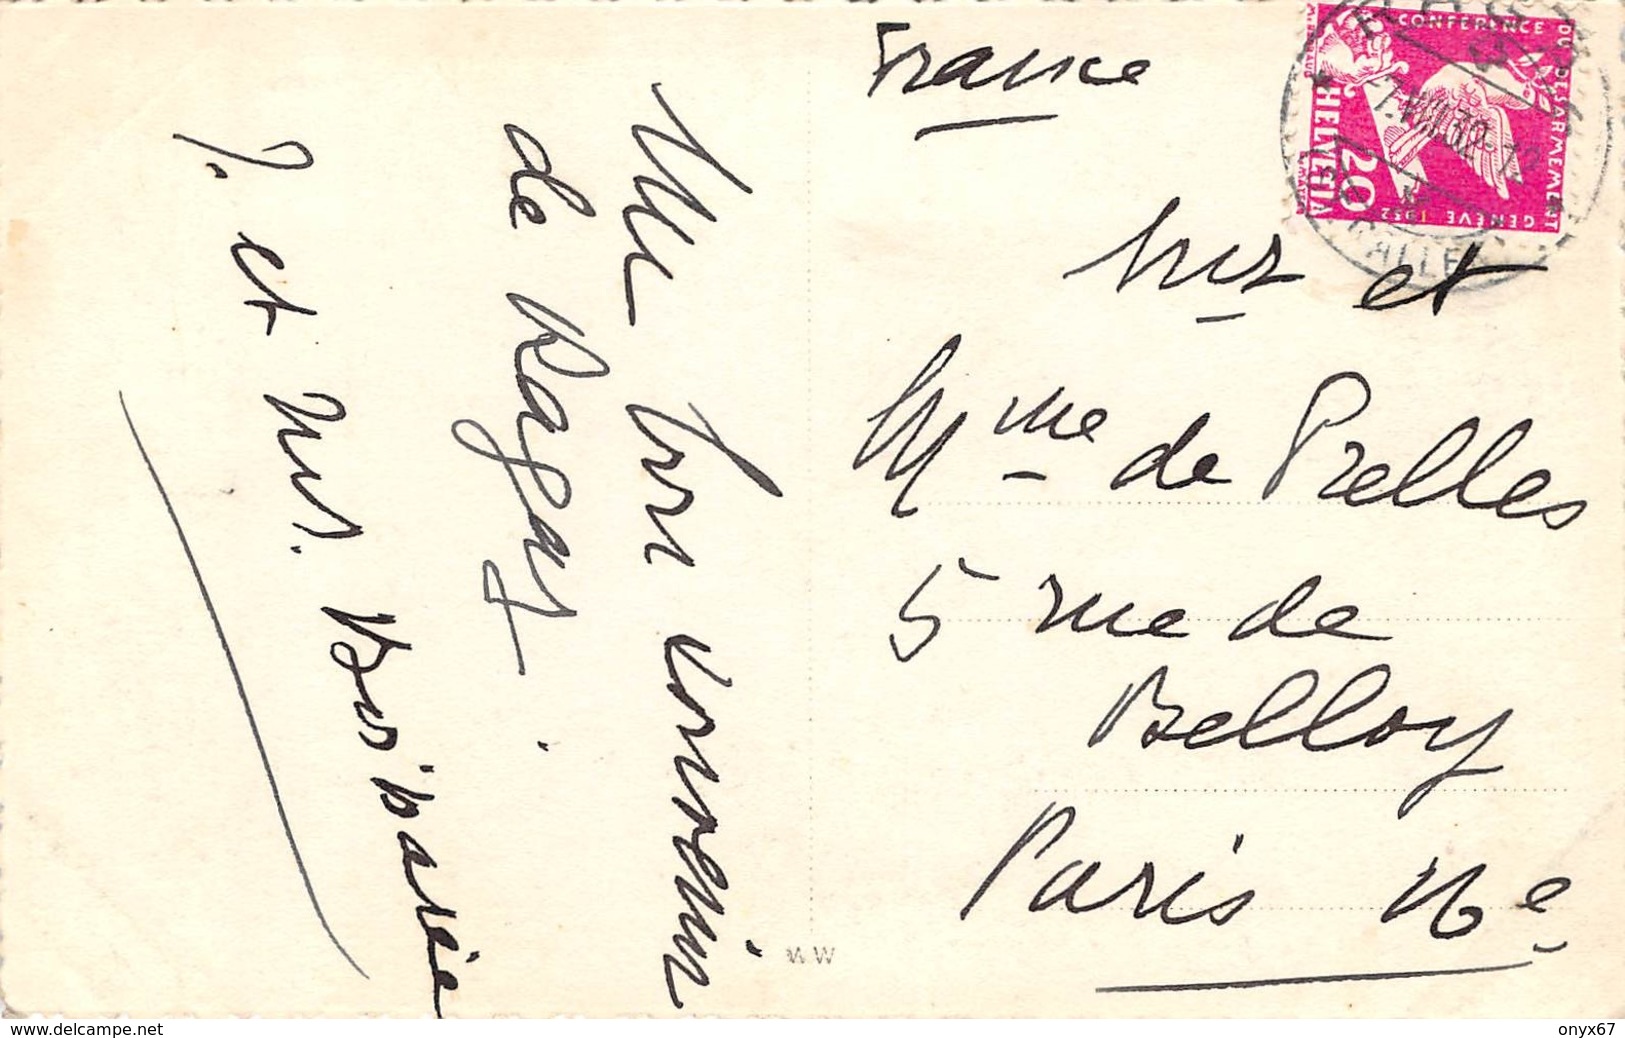 Un bon souvenir
de Ragaz.
J. et M.
France
Mr et
Mme de Prelles
5 rue de
Belloy
Paris 16e
CONFERENCE DU DESARMEMENT
GENEVE 1932
HELVETIA
20
RAGAZ
-7.VIII.32-12
(ST. GALLEN)
www.delcampe.net
onyx67